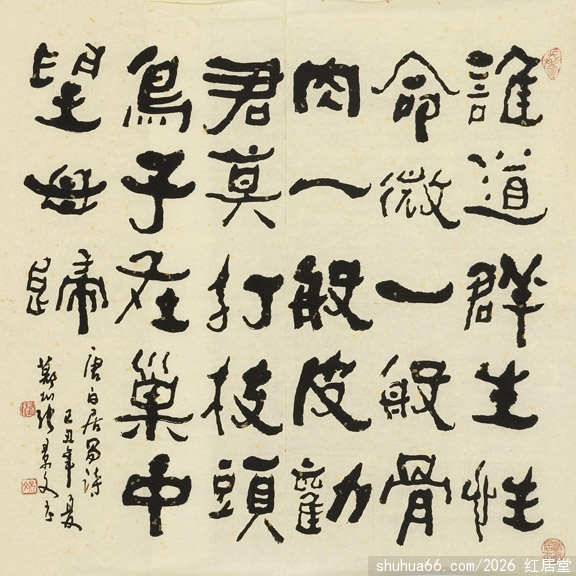 誰道群生性
命微一般骨
肉一般皮勸
君莫打枝頭
鳥子在巢中
望母歸
唐白居易詩
己丑年夏
shuhua66.com/2026 红居堂